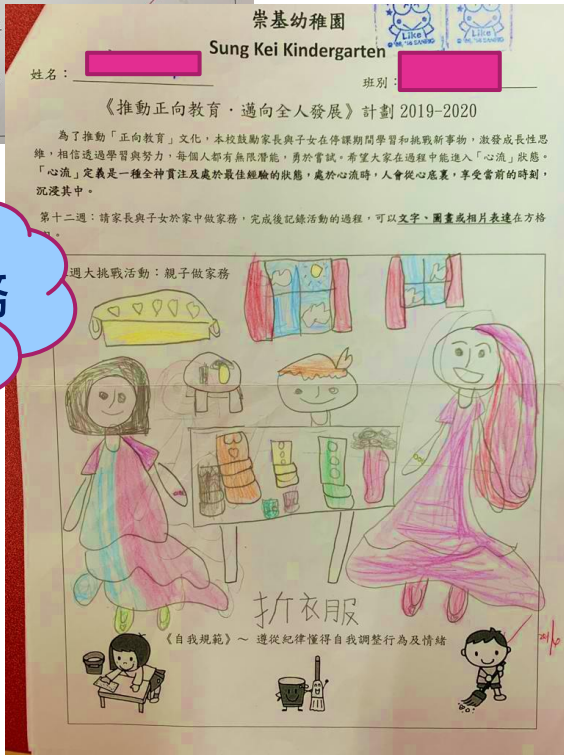 崇基幼稚園
Sung Kei Kindergarten
Like
Like
姓名：
班別：
《推動正向教育．邁向全人發展》計劃 2019-2020
為了推動「正向教育」文化，本校鼓勵家長與子女在停課期間學習和挑戰新事物，激發成長性思
維，相信透過學習與努力，每個人都有無限潛能，勇於嘗試。希望大家在過程中能進入「心流」狀態。
「心流」定義是一種全神貫注及處於最佳經驗的狀態，處於心流時，人會從心底裏，享受當前的時刻，
沉浸其中。
第十二週：請家長與子女於家中做家務，完成後記錄活動的過程，可以文字、圖畫或相片表達在方格
週大挑戰活動：親子做家務
務
折衣服
《自我規範》～ 遵從紀律懂得自我調整行為及情緒